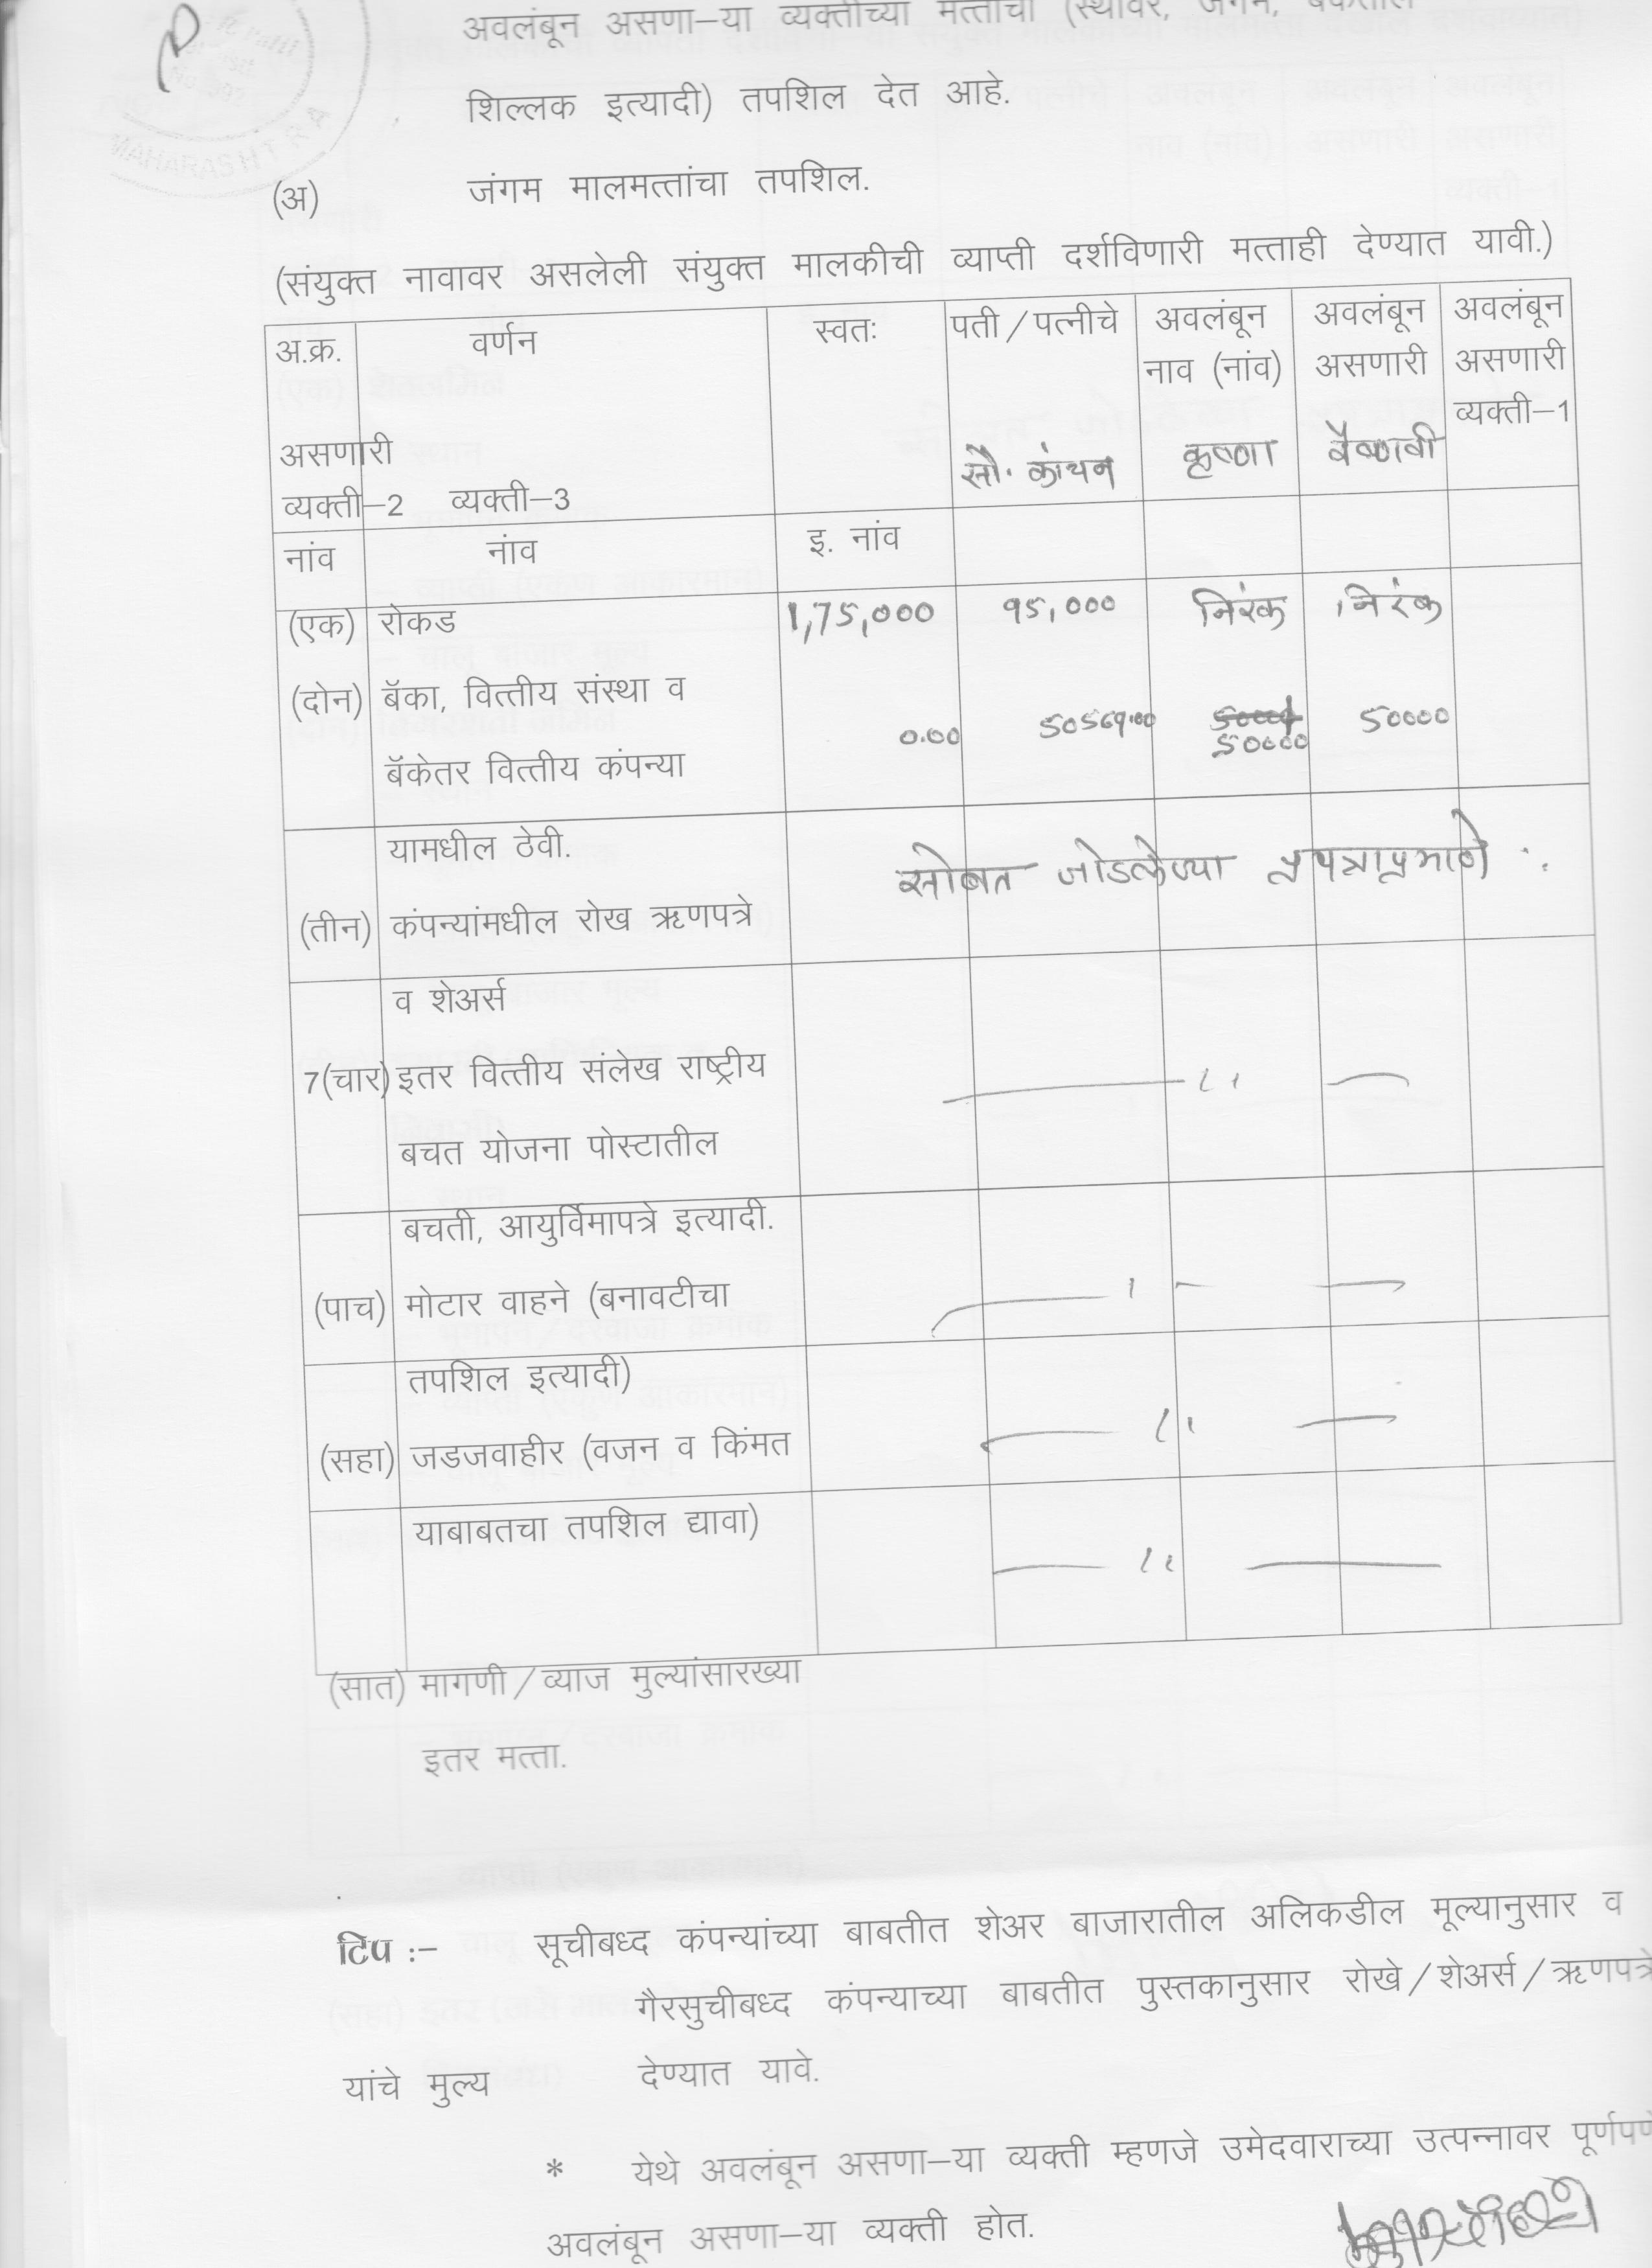 अवलंबून असणा–या व्यक्तींच्या मत्तांचा (स्थावर, जंगम, बँकेतील
शिल्लक इत्यादी) तपशिल देत आहे.
MAHARASHTRA
(अ) जंगम मालमत्तांचा तपशिल.
(संयुक्त नावावर असलेली संयुक्त मालकीची व्याप्ती दर्शविणारी मत्ताही देण्यात यावी.)
अ.क्र. वर्णन स्वतः पती/पत्नीचे अवलंबून अवलंबून अवलंबून
नाव (नांव) असणारी असणारी
व्यक्ती–1
असणारी सौ. कांचन कृष्णा वैष्णवी
व्यक्ती–2 व्यक्ती–3
नांव नांव इ. नांव
(एक) रोकड 1,75,000 95,000 निरंक निरंक
(दोन) बॅका, वित्तीय संस्था व
0.00 50569.00 50000 50000
बॅकेतर वित्तीय कंपन्या
यामधील ठेवी.
सोबत जोडलेल्या प्रपत्राप्रमाणे
(तीन) कंपन्यांमधील रोख ऋणपत्रे
व शेअर्स
7(चार) इतर वित्तीय संलेख राष्ट्रीय — ,, —
बचत योजना पोस्टातील
बचती, आयुर्विमापत्रे इत्यादी.
(पाच) मोटार वाहने (बनावटीचा
तपशिल इत्यादी)
(सहा) जडजवाहीर (वजन व किंमत — ,, —
याबाबतचा तपशिल द्यावा)
— ,, —
(सात) मागणी/व्याज मुल्यांसारख्या
इतर मत्ता.
टिप :– सूचीबध्द कंपन्यांच्या बाबतीत शेअर बाजारातील अलिकडील मूल्यानुसार व
गैरसुचीबध्द कंपन्याच्या बाबतीत पुस्तकानुसार रोखे/शेअर्स/ऋणपत्रे
यांचे मुल्य देण्यात यावे.
* येथे अवलंबून असणा–या व्यक्ती म्हणजे उमेदवाराच्या उत्पन्नावर पूर्णपणे
अवलंबून असणा–या व्यक्ती होत.